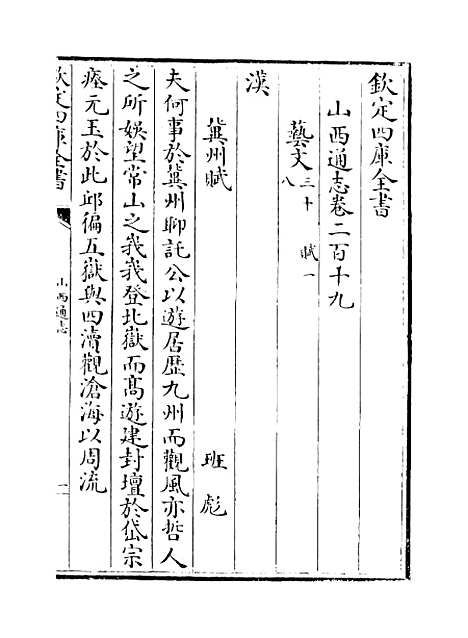 欽定四庫全書
山西通志卷二百十九
藝文三十八 賦一
漢
冀州賦 班彪
夫何事於冀州聊託公以遊居歷九州而觀風亦哲人
之所娛望常山之峩峩登北嶽而髙遊建封壇於岱宗
瘞元玉於此邱徧五嶽與四瀆觀滄海以周流
欽定四庫全書
山西通志